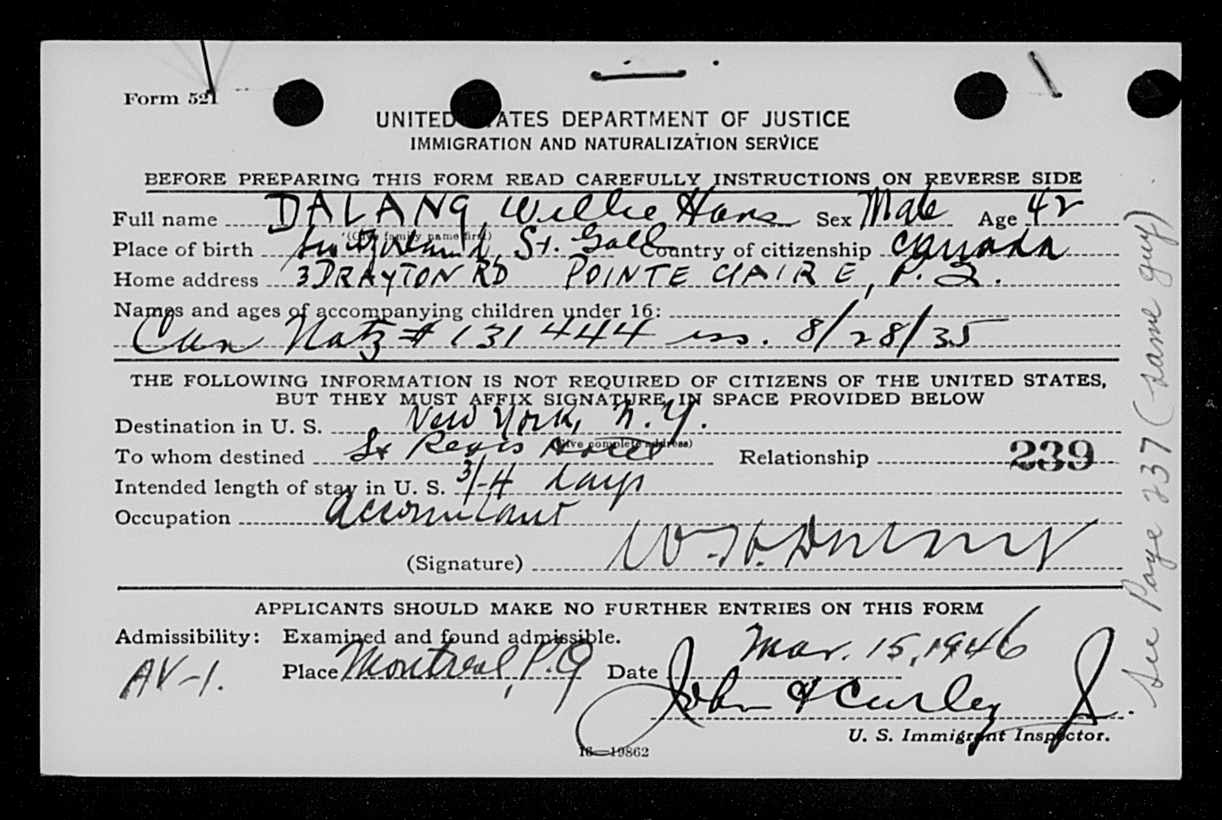 Form 521
UNITED STATES DEPARTMENT OF JUSTICE
IMMIGRATION AND NATURALIZATION SERVICE
BEFORE PREPARING THIS FORM READ CAREFULLY INSTRUCTIONS ON REVERSE SIDE
Full name DALANG, Willie Hans Sex Male Age 42
(Give family name first)
Place of birth Switzerland, St. Gall Country of citizenship Canada
Home address 3 DRAYTON RD POINTE CLAIRE, P.Q.
Names and ages of accompanying children under 16:
Can Natz # 131444 iss. 8/28/35
THE FOLLOWING INFORMATION IS NOT REQUIRED OF CITIZENS OF THE UNITED STATES,
BUT THEY MUST AFFIX SIGNATURE IN SPACE PROVIDED BELOW
Destination in U. S. New York, N.Y.
(Give complete address)
To whom destined St Regis Hotel Relationship 239
Intended length of stay in U. S. 3/4 days
Occupation Accountant
(Signature) W. H. Dalang
APPLICANTS SHOULD MAKE NO FURTHER ENTRIES ON THIS FORM
Admissibility: Examined and found admissible.
AV-1. Place Montreal, P.Q Date Mar. 15, 1946
John H Curley Jr.
U. S. Immigrant Inspector.
16—19862
See Page 237 (same guy)